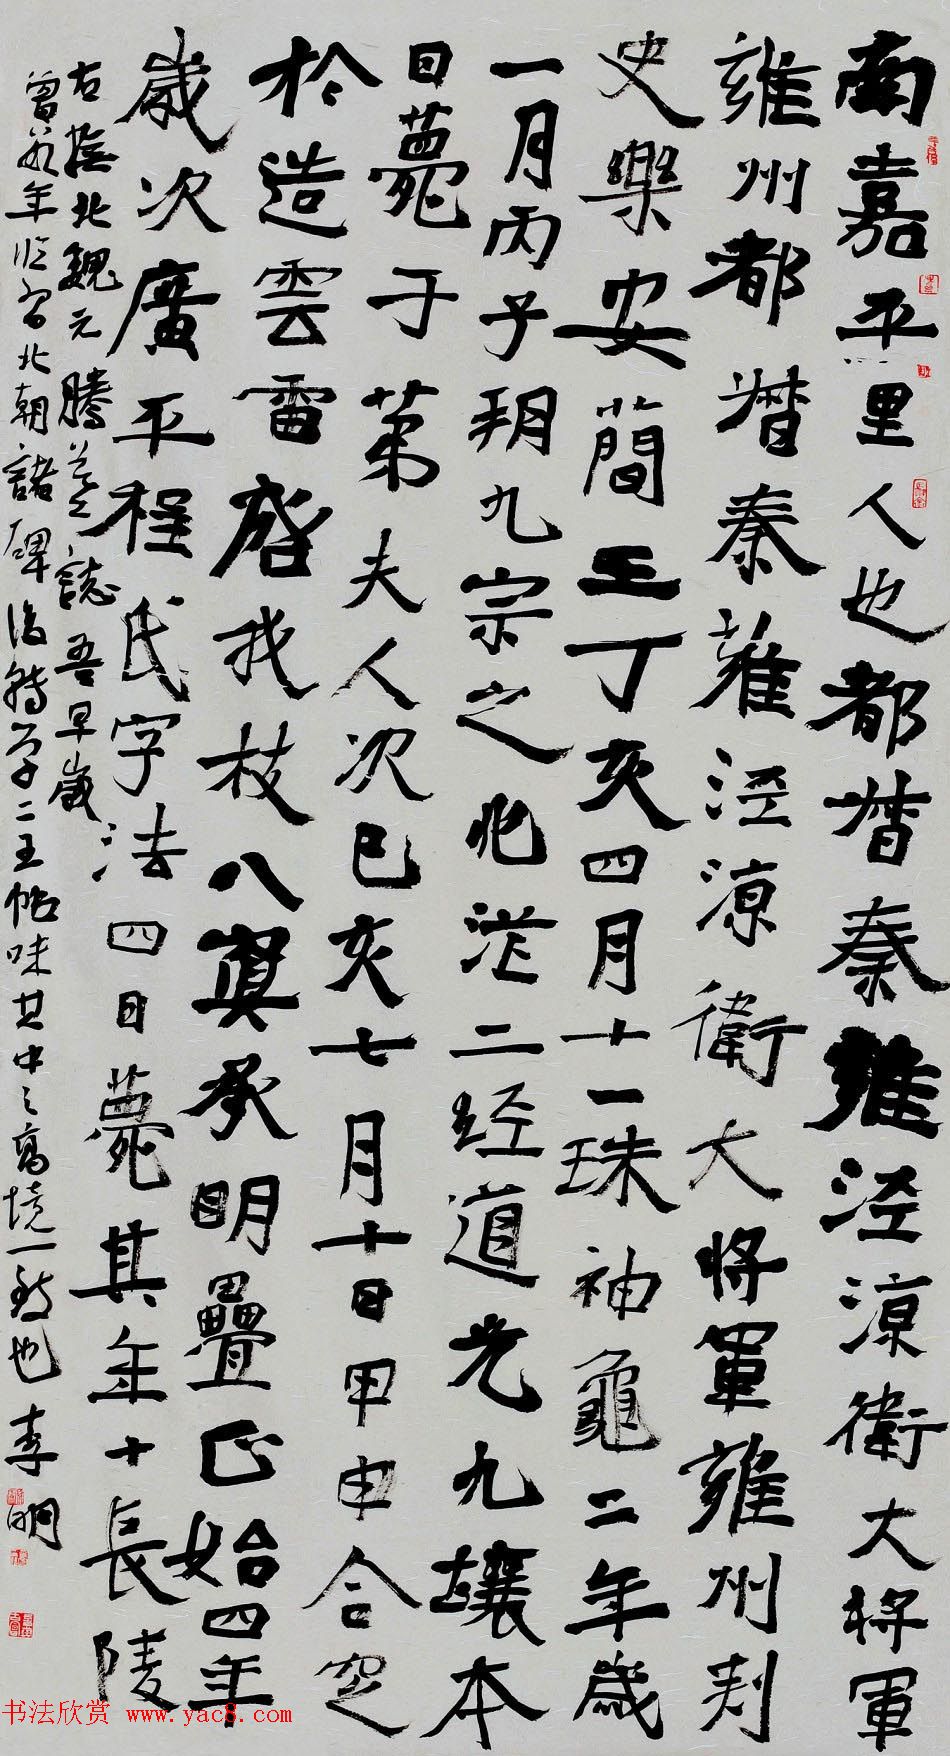 南嘉平里人也都督秦雍涇涼衛大將軍
雍州都督秦雍涇涼衛大將軍雍州刺
史樂安簡王丁亥四月十一珠神龜二年歲
一月丙子朔九宗之兆茫二经道光九壤本
日薨于第夫人次己亥七月十日甲申合窆
於造雲雷啓我枝八寘承明疊正始四年
歲次廣平程氏字法四日薨其年十長陵
右臨北魏元騰墓誌吾早歲
曾數年臨習北朝諸碑後轉學二王帖味其中之高境一致也 李明
书法欣赏 www.yac8.com